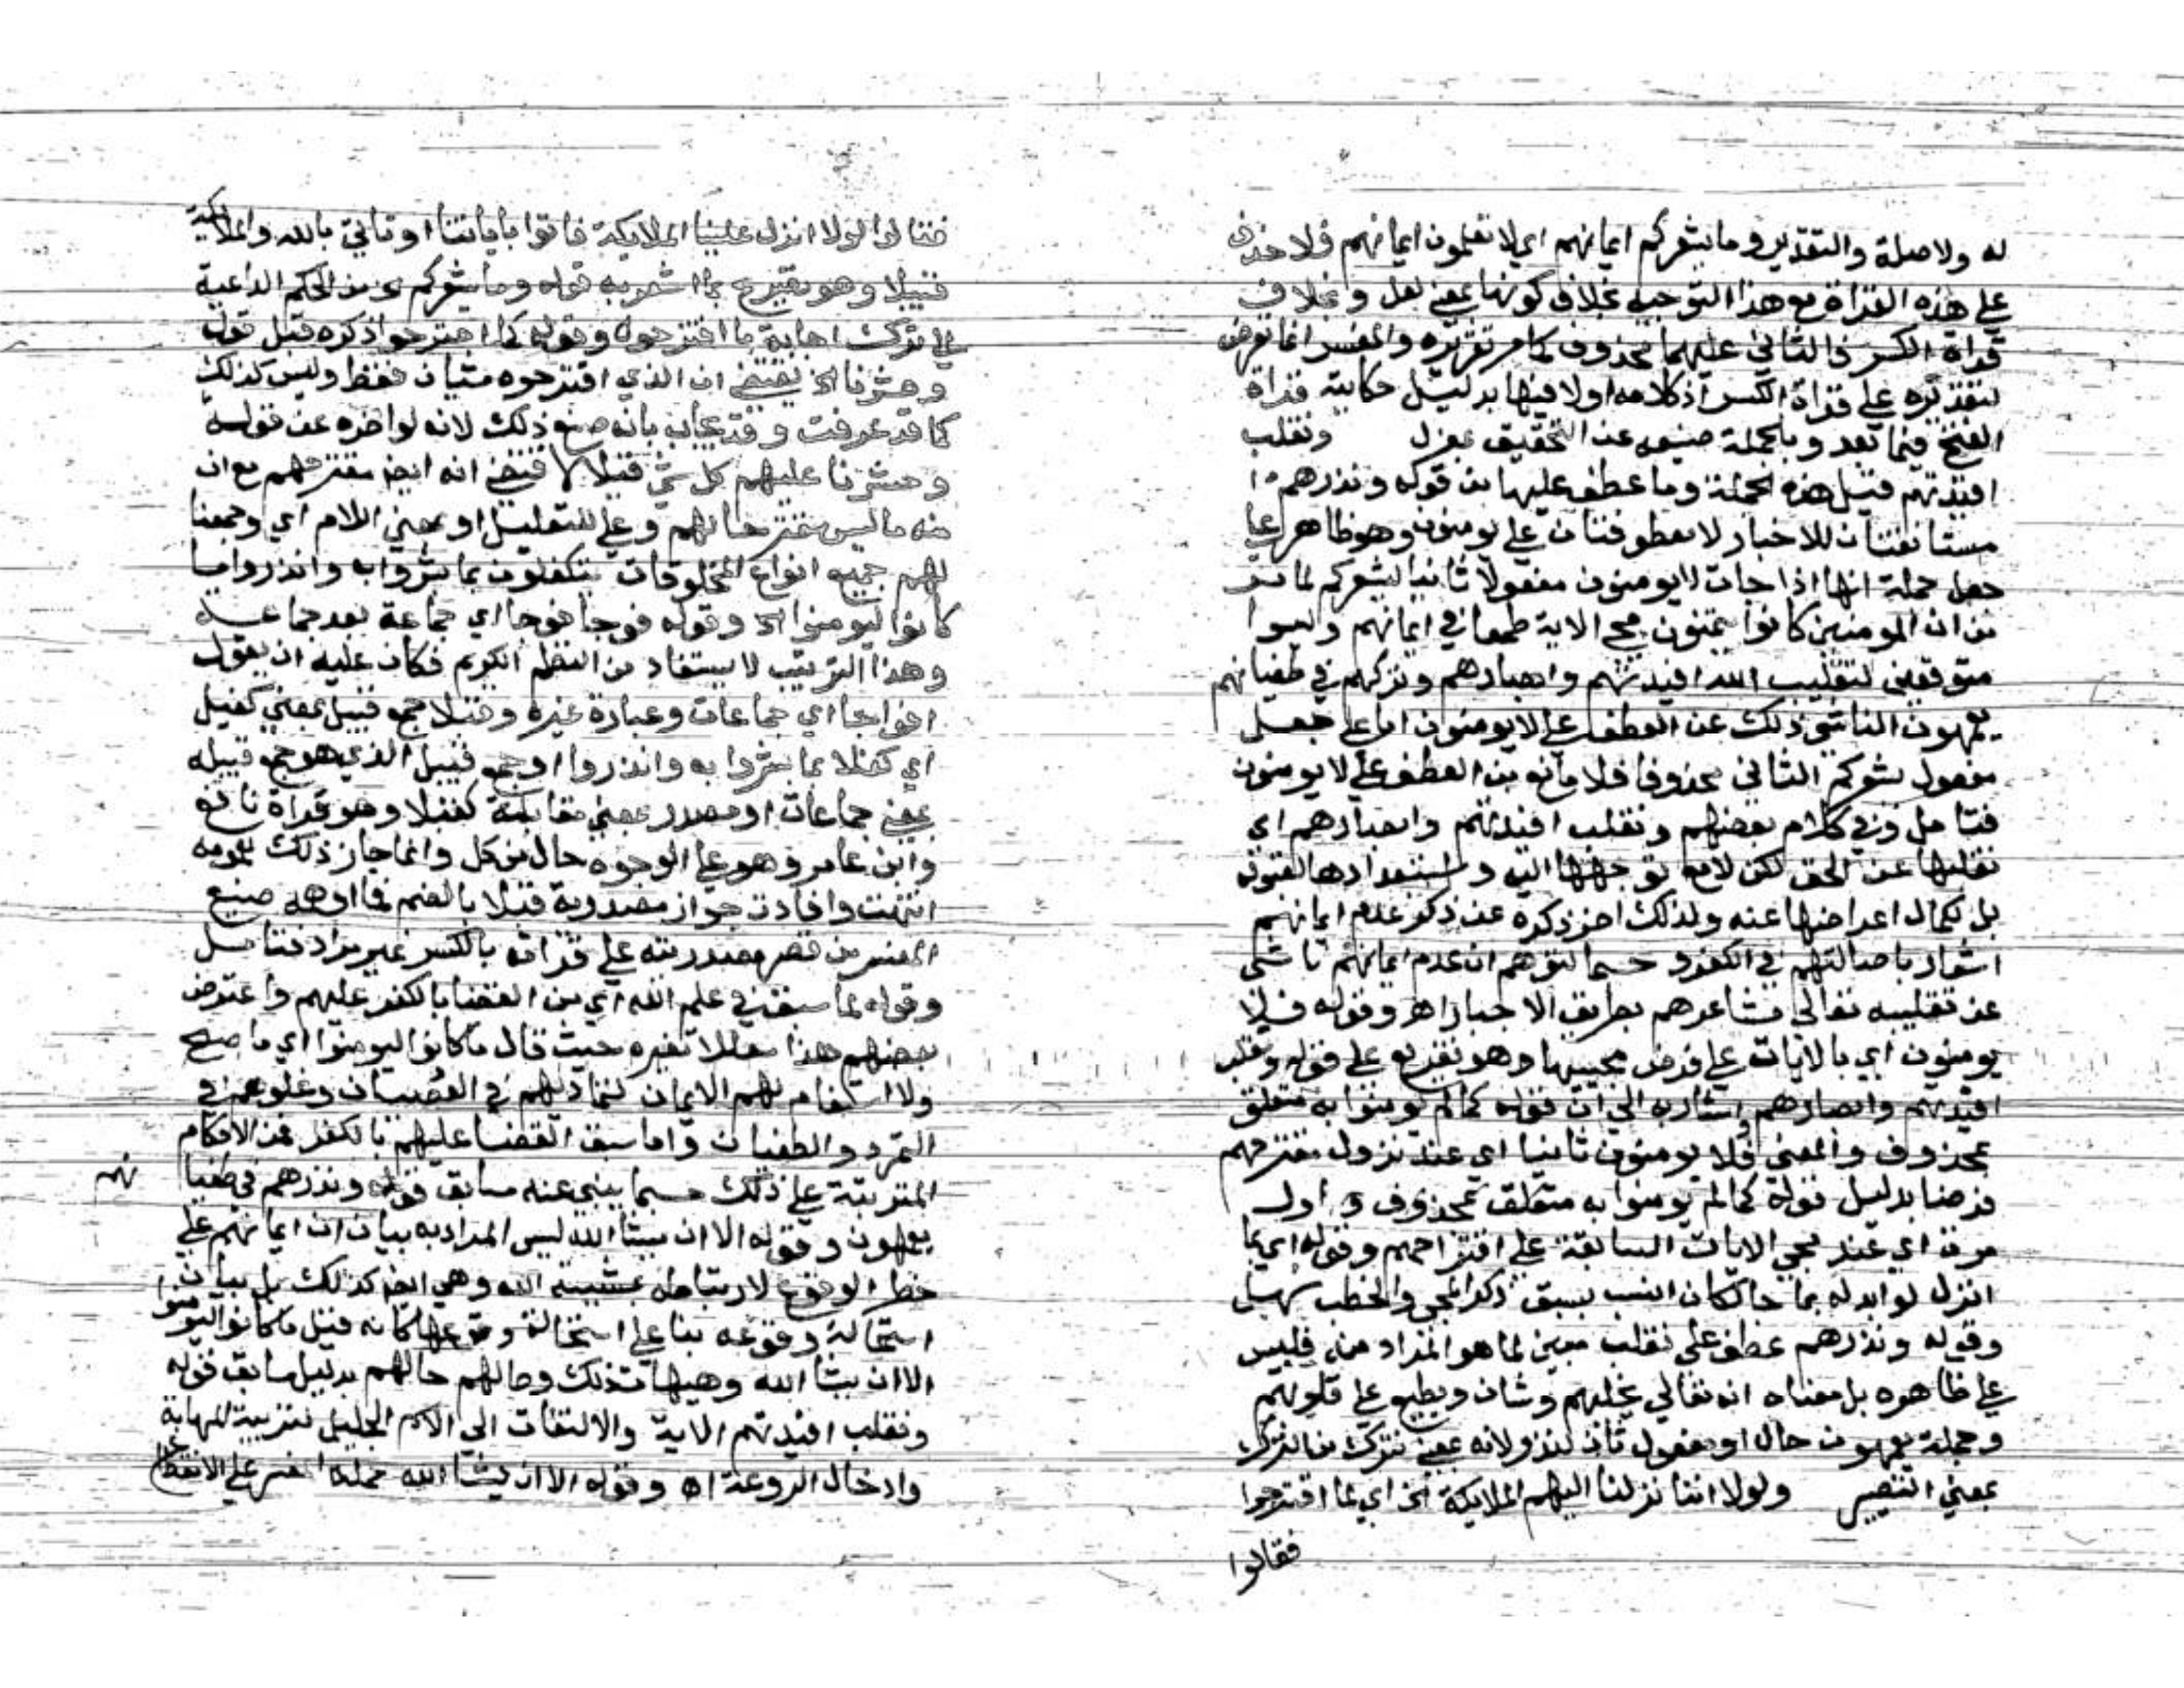 له ولا صلة والتقدير وما يشعركم ايمانهم اي لا تعلمون ايمانهم فلا حذف
على هذه القراة مع هذا التوجيه بخلاف كونها بمعني لعل وبخلاف
قراة الكسر فالثاني عليهما محذوف كما مر تقريره والمفسر انما تعرض
لتقديره على قراة الكسر اذ كلامه اولا فيها بدليل حكاية قراة
الفتح فيما بعد وبالجملة صنيعه عن التحقيق بمعزل ونقلب
افيدتهم قيل هذه الجملة وما عطف عليها من قوله ونذرهم
مستانفتان للاخبار لا معطوفتان على يومنون وهو ظاهر على
جعل جملة انها اذا جات لا يومنون مفعولا ثانيا ليشعركم لما مر
من ان المومنين كانوا يتمنون مجي الاية طمعا في ايمانهم وليسوا
متوقعين لتقليب الله افيدتهم وابصارهم وتركهم في طغيانهم
يعمهون الناشي ذلك عن العطف على لا يومنون اما على جعل
مفعول يشعركم الثاني محذوفا فلا مانع من العطف على لا يومنون
فتامل وفي كلام بعضهم ونقلب افيدتهم وابصارهم اي
نقلبها عن الحق لكن لا مع توجهها اليه واستعدادها لقبوله
بل لكمال اعراضها عنه ولذلك اخر ذكره عن ذكر عدم ايمانهم
اشعار باصالتهم في الكفر وحسما لتوهم ان عدم ايمانهم ناشي
عن تقليبه تعالى مشاعرهم بطريق الاجبار اهـ وقوله فلا
يومنون اي بالايات على فرض مجييها وهو تفريع على قوله ونقلب
افيدتهم وابصارهم اشار به الى ان قوله كما لم يومنوا به متعلق
بمحذوف والمعني فلا يومنون ثانيا اي عند نزول مقترحهم
فرضا بدليل قوله كما لم يومنوا به متعلق بمحذوف و اول
مرة اي عند مجي الايات السابقة على اقتراحهم وقوله اي بما
انزل لو ابدله بما جا لكان انسب بسبق ذكر المجي والخطب سهل
وقوله ونذرهم عطف على نقلب مبين لما هو المراد منه فليس
على ظاهره بل معناه انه تعالى يخليهم وشان ويطبع على قلوبهم
وجملة يعمهون حال او مفعول ثان لنذر لانه بمعني نترك من الترك
بمعني التصيير ولو اننا نزلنا اليهم الملايكة الخ اي لما اقترحوا
فقالوا
فقالوا لولا انزل علينا الملايكة فاتوا باياتنا او تاتي بالله والملايكة
قبيلا وهو تصريح بما اشعر به قوله وما يشعركم الخ من الحكم الداعية
الى ترك اجابة ما اقترحوه وقوله كما اقترحوا ذكره قبل قوله
وحشرنا الخ يقتضي ان الذي اقترحوه شيان فقط وليس كذلك
كما قد عرفت وقد يجاب بانه صنع ذلك لانه لو اخره عن قوله
وحشرنا عليهم كل شي قبلا لاقتضي انه ايضا مقترحهم مع ان
منه ما ليس مقترحا لهم وعلى للتعليل او بمعني اللام اي وجمعنا
لهم جميع انواع المخلوقات يتكفلون بما بشروا به وانذروا ما
كانوا ليومنوا الخ وقوله فوجا فوجا اي جماعة بعد جماعة
وهذا الترتيب لا يستفاد من النظم الكريم فكان عليه ان يقول
افواجا اي جماعات وعبارة غيره وقبلا جمع قبيل بمعني كفيل
اي كفلا بما بشروا به وانذروا او جمع قبيل الذي هو جمع قبيلة
بمعني جماعات او مصدر بمعني مقابلة كقبلا وهو قراة نافع
وابن عامر وهو على الوجوه حال من كل وانما جاز ذلك لعمومه
انتهت وافادت جواز مصدرية قبلا بالضم فما اوهمه صنيع
المفسر من قصر مصدريته على قراته بالكسر غير مراد فتامل
وقوله لما سبق في علم الله اي من القضا بالكفر عليهم واعترض
بعضهم هذا معللا بغيره حيث قال ما كانوا ليومنوا اي ما صح
ولا استقام لهم الايمان لتماديهم في العصيان وغلوهم في
التمرد والطغيان واما سبق القضا عليهم بالكفر فمن الاحكام
المترتبة على ذلك حسبما ينبي عنه سابق قوله ونذرهم في طغيا نهم
يعمهون وقوله الا ان يشا الله ليس المراد به بيان ان ايمانهم على
خطر الوقوع لارتباطه بمشيية الله وهي ايضا كذلك بل بيان
استحالة وقوعه بنا على استحالة وقوعها كانه قيل ما كانوا ليومنوا
الا ان يشا الله وهيهات ذلك وحالهم حالهم بدليل سابق قوله
ونقلب افيدتهم الاية والالتفات الى الاسم الجليل لتربية المهابة
وادخال الروعة اهـ وقوله الا ان يشا الله حمله المفسر على الانقطاع